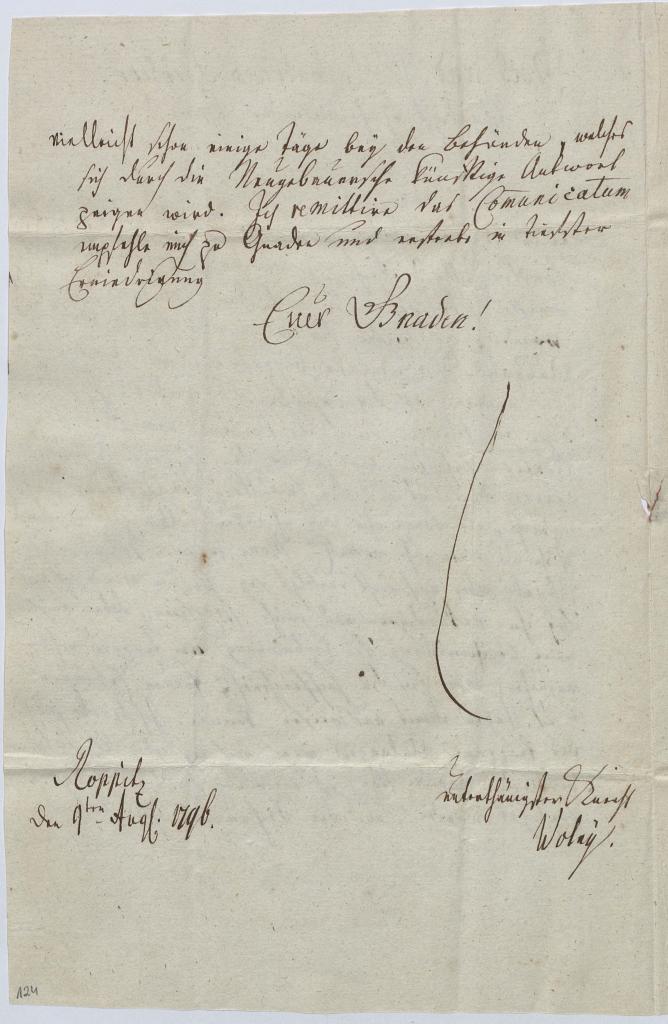 vielleicht schon einige Täge bey den Behörden, welches
sich durch die Neugebauersche künftige Antwort
zeigen wird. Ich remittire das Comunicatum
empfehle mich zu Gnaden und ersterbe in tiefster
Erniedrigung
Euer Gnaden!
Roppitz
den 9ten Augst: 1796.
unterthänigster Knecht
Wolny.
124